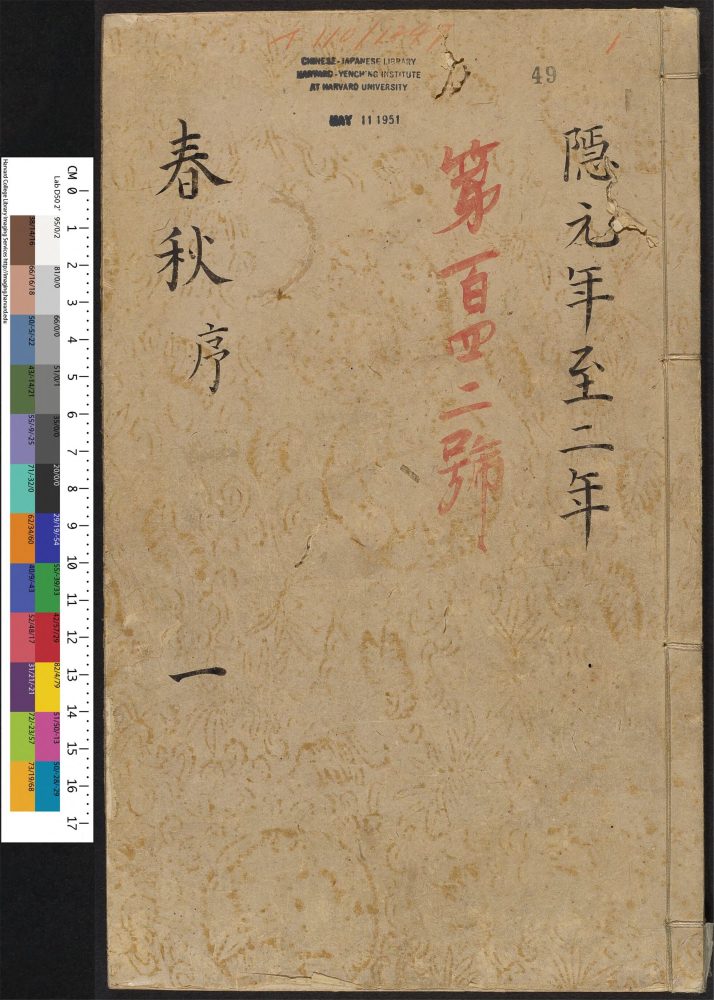 CHINESE-JAPANESE LIBRARY
HARVARD-YENCHING INSTITUTE
AT HARVARD UNIVERSITY
MAY 11 1951
49
隱元年至二年
第百四二號
春秋序
一
CM 0 1 2 3 4 5 6 7 8 9 10 11 12 13 14 15 16 17
Harvard College Library Imaging Services